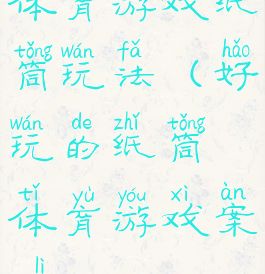 体育游戏纸
tǒng wán fǎ hǎo
筒玩法（好
wán de zhǐ tǒng
玩的纸筒
tǐ yù yóu xì àn
体育游戏案
lì